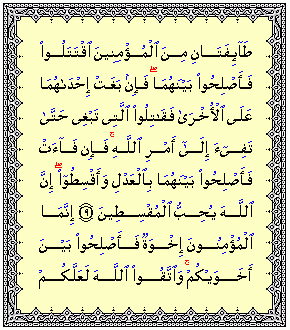 طَآئِفَتَانِ مِنَ ٱلۡمُؤۡمِنِينَ ٱقۡتَتَلُواْ
فَأَصۡلِحُواْ بَيۡنَهُمَاۖ فَإِنۢ بَغَتۡ إِحۡدَىٰهُمَا
عَلَى ٱلۡأُخۡرَىٰ فَقَٰتِلُواْ ٱلَّتِي تَبۡغِي حَتَّىٰ
تَفِيٓءَ إِلَىٰٓ أَمۡرِ ٱللَّهِۚ فَإِن فَآءَتۡ
فَأَصۡلِحُواْ بَيۡنَهُمَا بِٱلۡعَدۡلِ وَأَقۡسِطُوٓاْۖ إِنَّ
ٱللَّهَ يُحِبُّ ٱلۡمُقۡسِطِينَ ۝٩ إِنَّمَا
ٱلۡمُؤۡمِنُونَ إِخۡوَةٞ فَأَصۡلِحُواْ بَيۡنَ
أَخَوَيۡكُمۡۚ وَٱتَّقُواْ ٱللَّهَ لَعَلَّكُمۡ